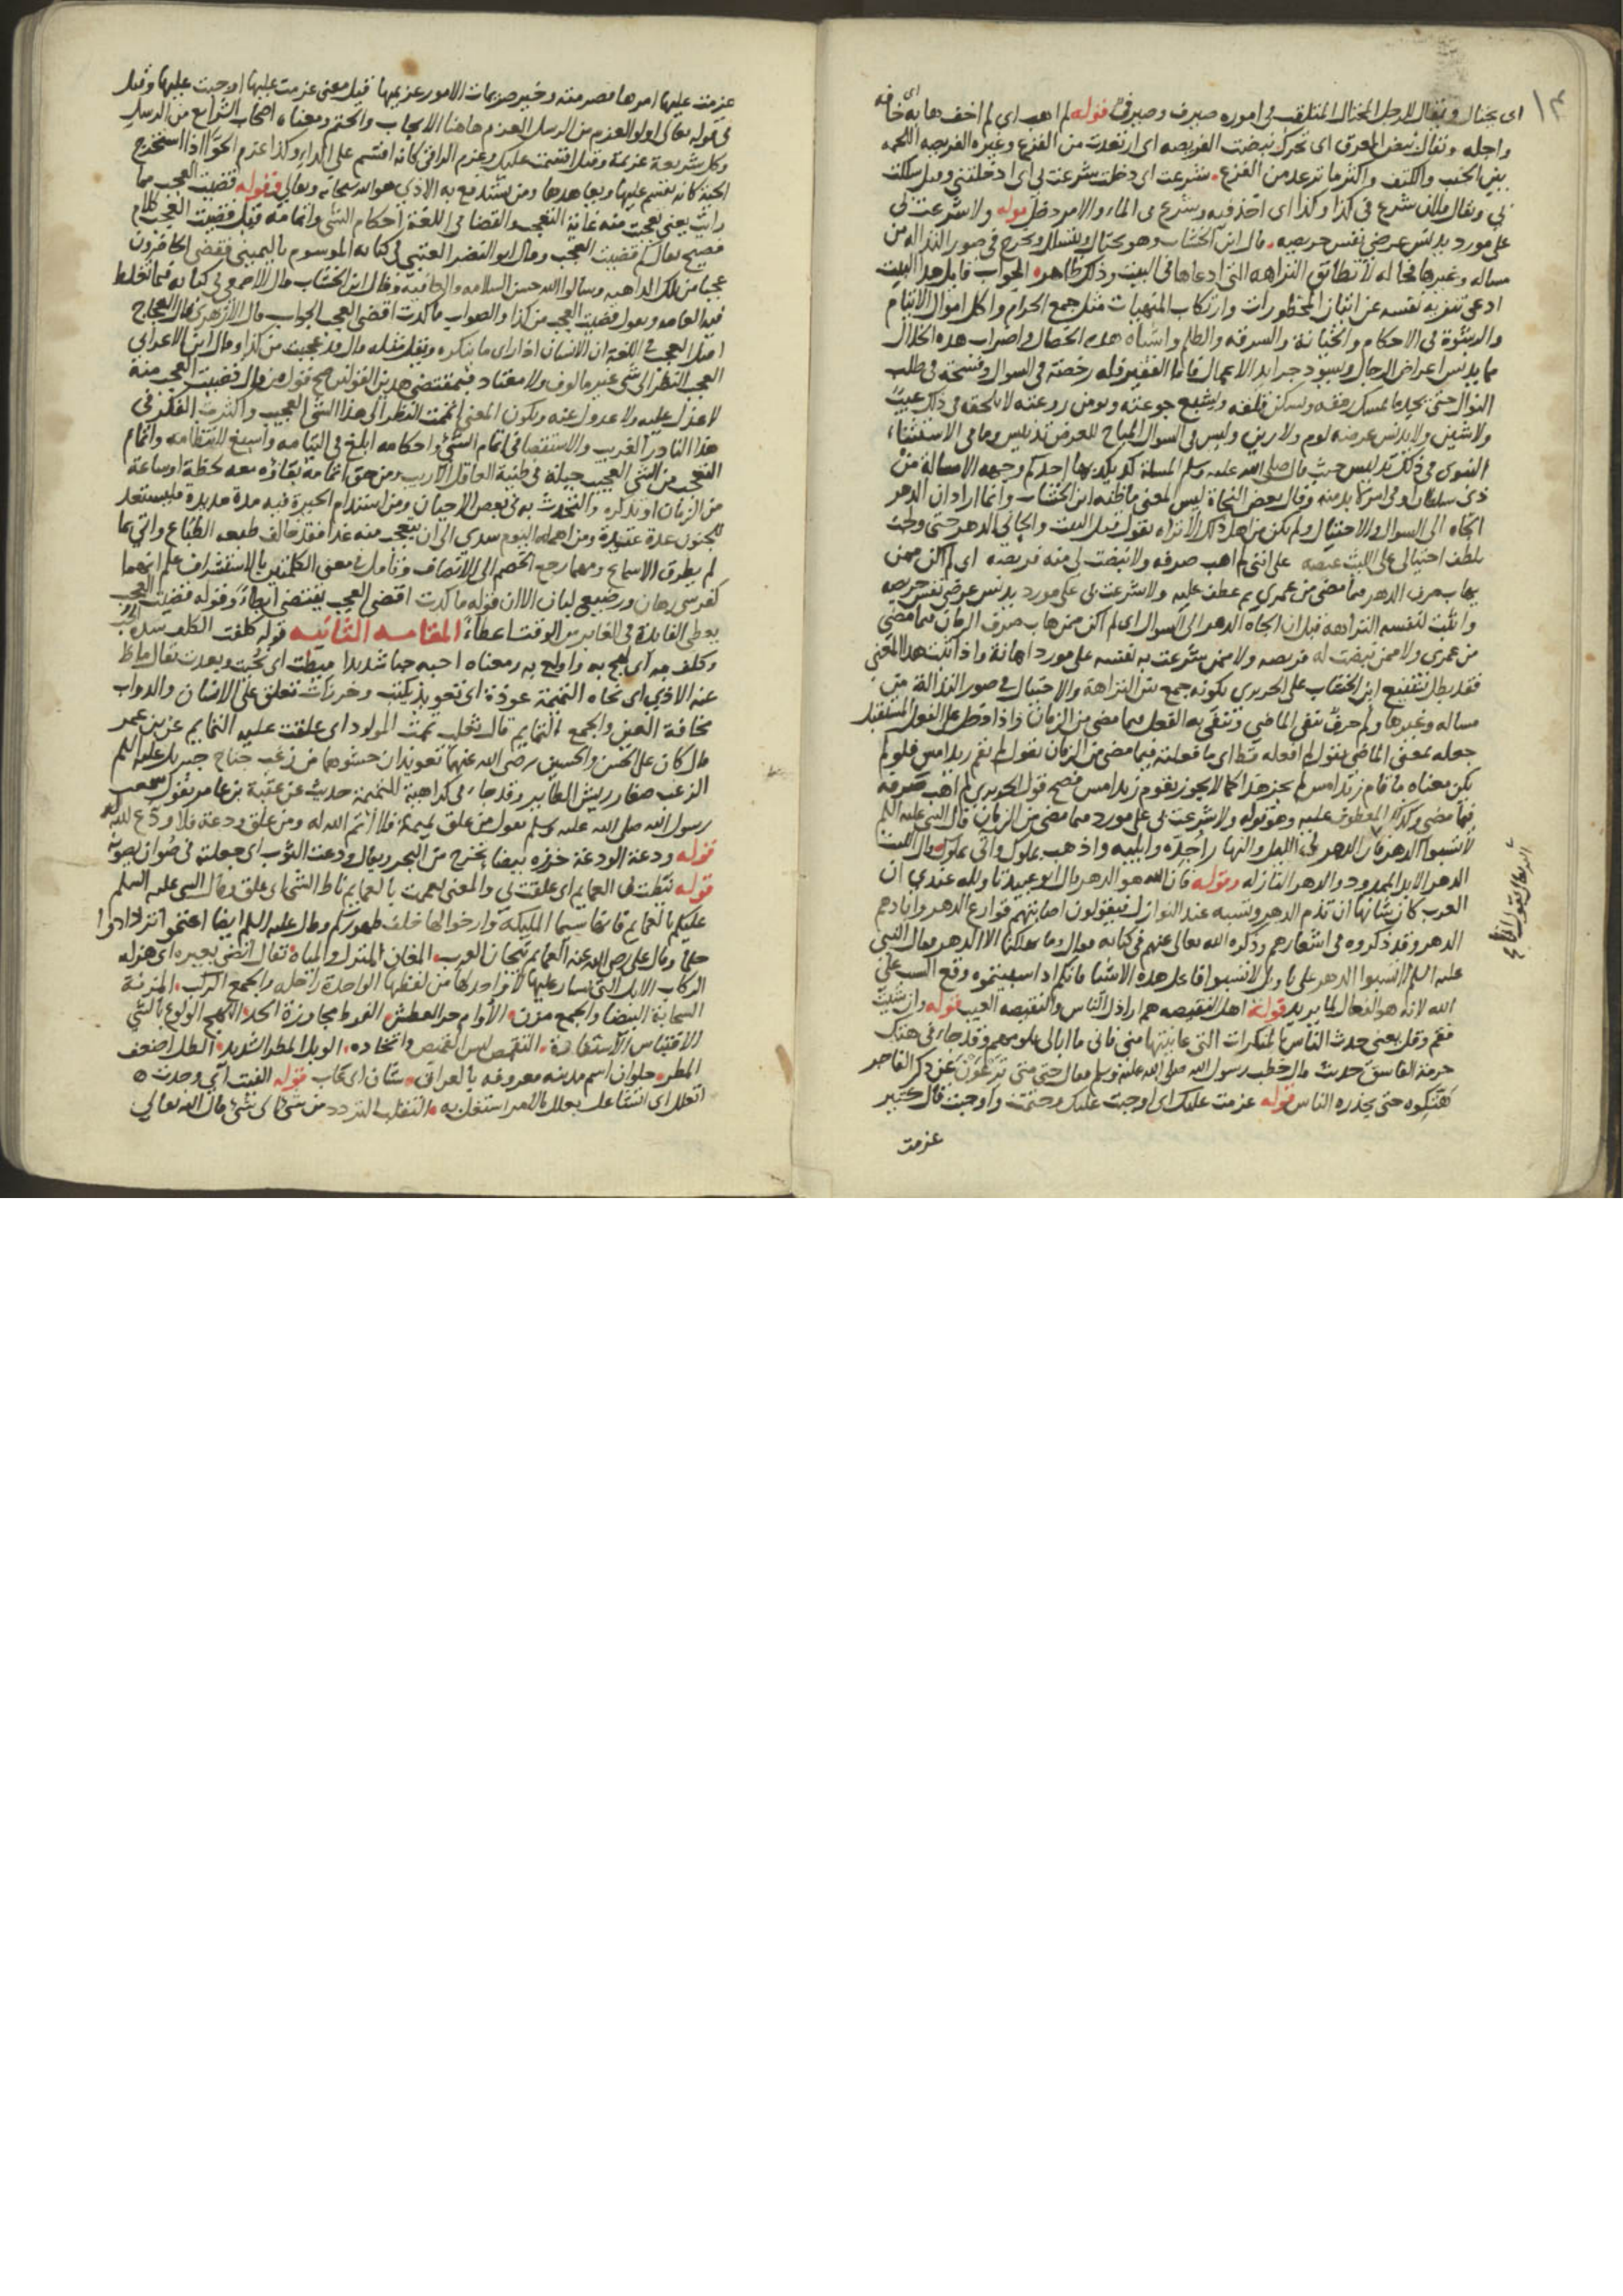 ١٣
اى يحتال ويقال للرجل المحتال المتقلب فى اموره صيرف وصيرفى قوله لم اهب اى لم اخف هابه اى خافه
واجله ويقال نبض العرق اى تحرك نبضت الفريصه اى ارتعدت من الفزع وغيره الفريصه اللحمه
بين الجنب والكتف واكثر ما ترعد من الفزع شرعت اى دخلت شرعت بى اى ادخلتنى وقيل سلكت
بى ويقال فلان شرع فى كذا وكذا اى اخذ فيه وشرع فى الماء والامر دخل قوله ولا شرعت بى
على مورد يدنس عرضى نفس حريصه قال ابن الخشاب وهو يحتال ويتسلل ويخرج فى صور النذاله من
مساله وغيرها فحاله لا تطابق النزاهه التى ادعاها فى البيت وذلك ظاهر الجواب قايل هذا البيت
ادعى تنزيه نفسه عن اتيان المحظورات وارتكاب المنهيات مثل جمع الحرام واكل اموال الايتام
والرشوة فى الاحكام والخيانة والسرقه والظلم واشباه هذه الخصال واضراب هذه الخلال
مما يدنس اعراض الرجال ويسود جرايد الاعمال فاما الفقير فله رخصة فى السوال وفسحة فى طلب
النوال حتى يجد ما يمسك رمقه ويسكن قلقه ويشبع جوعته ويومن روعته لا يلحقه فى ذلك عيب
ولا شين ولا يدنس عرضه لوم ولا رين وليس فى السوال المباح للعرض تدنيس وما فى الاستفتاء
النبوى فى ذلك تدليس حيث قال صلى الله عليه وسلم المسلة كد يكد بها احدكم وجهه الا مسالة من
ذى سلطان او فى امر لا بد منه وقال بعض النحاة ليس المعنى ما ظنه ابن الخشاب وانما اراد ان الدهر
الجاه الى السوال والاحتيال ولم يكن من اهل ذلك الا تراه يقول قبل البيت والجانى الدهر حتى ولجت
بلطف احتيالى على الليث عيصه على اننى لم اهب صرفه ولا نبضت لى منه فريصه اى لم اكن ممن
يهاب صرف الدهر فيما مضى من عمرى ثم عطف عليه ولا شرعت بى على مورد يدنس عرضى نفس حريصه
واثبت لنفسه النزاهة قبل ان الجاه الدهر الى السوال اى لم اكن ممن هاب صرف الزمان فيما مضى
من عمرى ولا ممن نبضت له فريصه ولا ممن شرعت به نفسه على مورد اهانة واذا ثبت هذا المعنى
فقد بطل تشنيع ابن الخشاب على الحريرى بكونه جمع بين النزاهة والاحتيال فى صور النذالة من
مساله وغيرها ولم حرف نفى الماضى وتنفى به الفعل فيما مضى من الزمان واذا دخل على الفعل المستقبل
جعله بمعنى الماضى يقول لم افعله قط اى ما فعلته فيما مضى من الزمان تقول لم يقم زيد امس فلو لم
يكن معناه ما قام زيد امس لم يجز هذا كما لا يجوز يقوم زيد امس فصح قول الحريرى لم اهب صرفه
فيما مضى وكذلك المعطوف عليه وهو قوله ولا شرعت بى على مورد فيما مضى من الزمان قال النبى عليه السلم
لا تسبوا الدهر فان الدهر لى الليل والنهار اجدده وابليه واذهب بملوك واتى بملوك قال الليث
الدهر الابد الممدود والدهر النازله وقوله فان الله هو الدهر قال ابو عبيد تاويله عندى ان
العرب كان شانها ان تذم الدهر وتسبه عند النوازل فيقولون اصابتهم قوارع الدهر وابادهم
الدهر وقد ذكروه فى اشعارهم وذكره الله تعالى عنهم فى كتابه فقال وما يهلكنا الا الدهر فقال النبى
عليه السلم لا تسبوا الدهر على تاويل لا تسبوا فاعل هذه الاشيا فانكم اذا سببتموه وقع السب على
الله لانه هو الفعال لما يريد قوله اهل النقيصه هم اراذل الناس والنقيصه العيب قوله وان شيت
فقم وقل يعنى حدث الناس بالمنكرات التى عاينتها منى فانى ما ابالى بلومهم وقد جاء فى هتك
حرمة الفاسق حديث قال خطب رسول الله صلى الله عليه وسلم فقال حتى متى ترعون عن ذكر الفاجر
هتكوه حتى يحذره الناس قوله عزمت عليك اى اوجبت عليك وحتمت واوجبت قال كثير
عزمت
عزمت عليها امرها فصرمته وخير صريمات الامور عزيمها قيل معنى عزمت عليها اوجبت عليها وقيل
فى قوله تعالى اولو العزم من الرسل العزم هاهنا الايجاب والحتم ومعناه اصحاب الشرايع من الرسل
وكل شريعة عزيمة وقيل اقسمت عليك وعزم الراقى كانه اقسم على الداء وكذا عزم الحواا اذا استخرج
الحية كانه يقسم عليها ويعاهدها ومن يستدفع به الاذى هو الله سبحانه وتعالى وقوله قضيت العجب مما
رايت يعنى تعجبت منه غاية التعجب والقضا فى اللغة احكام الشى واتمامه فقيل قضيت العجب كلام
فصيح يقال كم قضيت العجب وقال ابو النضر العتبى فى كتابه الموسوم باليمينى فقضى الحاضرون
عجبا من تلك الداهيه وسالوا الله حسن السلامه والعافيه وقال ابن الخشاب قال الاصمعى فى كتابه فيما تغلط
فيه العامه ويقول قضيت العجب من كذا والصواب ما كدت اقضى العجب الجواب قال الازهرى قال الزجاج
اصل العجب فى اللغة ان الانسان اذا راى ما ينكره ويقل مثله قال قد عجبت من كذا وقال ابن الاعرابى
العجب النظر الى شى غير مالوف ولا معتاد فبمقتضى هذين القولين صح قول من قال قضيت العجب منه
لا عذل عليه ولا عدول عنه ويكون المعنى اتممت النظر الى هذا الشى العجيب واكثرت الفكر فى
هذا النادر الغريب والاستقصا فى اتمام الشى واحكامه ابلغ فى التيامه واسبغ لانتظامه واتمام
التعجب من الشى العجيب جبلة فى طينة العاقل الاريب ومن حق اتمامه بقاؤه معه لحظة او ساعة
من الزمان او تذكره والتحدث به فى بعض الاحيان ومن استدام الحيرة فيه مدة مديدة فليستعد
للجنون عدة عتيدة ومن اهمله اليوم سدى الى ان يتعجب منه غدا فقد خالف طبعه الطباع واتى بما
لم يطرق الاسماع ومهما رجع الخصم الى الانصاف وتامل فى معنى الكلمتين بالاستشراف علم انهما
كفرسى رهان ورضيعى لبان الا ان قوله ما كدت اقضى العجب يقتضى ابطاء وقوله قضيت العجب
يعطى الفايدة فى الغابر من الوقت اعطاء المقامه الثانيه قوله كلفت الكلف شدة الحب
وكلف به اى لهج به واولع به ومعناه احبه حبا شديدا ميطت اى نحيت وبعدت يقال ماط
عنه الاذى اى نحاه التميمة عوذة اى تعويذ يكتب وخرزات تعلق على الانسان والدواب
مخافة العين والجمع التمايم قال ثعلب تممت المولود اى علقت عليه التمايم عن بن عمر
قال كان على الحسن والحسين رضى الله عنهما تعويذان حشوهما من زغب جناح جبريل عليه السلم
الزغب صغار ريش الطاير وقد جاء فى كراهية التميمة حديث عن عقبة بن عامر يقول سمعت
رسول الله صلى الله عليه وسلم يقول من علق تميمة فلا اتم الله له ومن علق ودعة فلا ودع الله له
قوله ودعة الودعة خرزه بيضا تخرج من البحر ويقال ودعت الثوب اى جعلته فى صوان يصونه
قوله نيطت بى العمايم اى علقت بى والمعنى تعممت بالعمايم ناط الشى اى علق وقال النبى عليه السلم
عليكم بالعمايم فانها سيما المليكة وارخوا لها خلف ظهوركم وقال عليه السلم ايضا اعتموا تزدادوا
حلما وقال على رضى الله عنه العمايم تيجان العرب المغانى المنزل والمياه يقال انضى بعيره اى هزله
الركاب الابل التى يسار عليها لا واحد لها من لفظها الواحدة راحله والجمع الركب المزنة
السحابة البيضا والجمع مزن الاوام حر العطش الفرط مجاوزة الحد اللهج الولوع بالشى
الاقتباس الاستفادة التقمص لبس القميص واتخاده الوبل المطر الشديد الطل اضعف
المطر حلوان اسم مدينه معروفه بالعراق شان اى عاب قوله الفيت اى وجدت
اتعلل اى اتشاغل تعلل بالامر استغل به التقلب التردد من شى الى شى قال الله تعالى